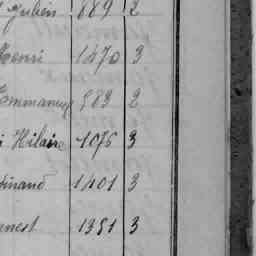 Julien 889 2
Henri 1470 3
Emmanuel 983 2
Hilaire 1076 3
dinand 1401 3
nest 1351 3